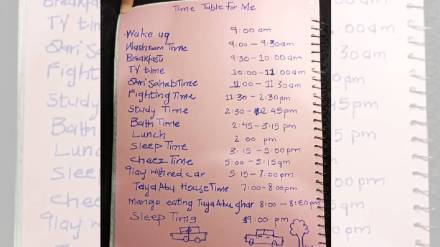 Time Table for Me
Wake up 9:00 am
Washroom Time 9:00 - 9:30am
Breakfast 9:30 - 10:00am
TV time 10:00 - 11:00am
Qari Sahab Time 11:00 - 11:30am
Fighting Time 11:30 - 2:30pm
Study Time 2:30 - 2:45pm
Bath Time 2:45 - 3:15 pm
Lunch 2:00 pm
Sleep Time 3:15 - 5:00pm
Cheez Time 5:00 - 5:15pm
Play with red car 5:15 - 7:00pm
Taya Abu House Time 7:00 - 8:00pm
Mango eating Taya Abu ghar 8:00 - pm
Sleep Time 9:00 pm